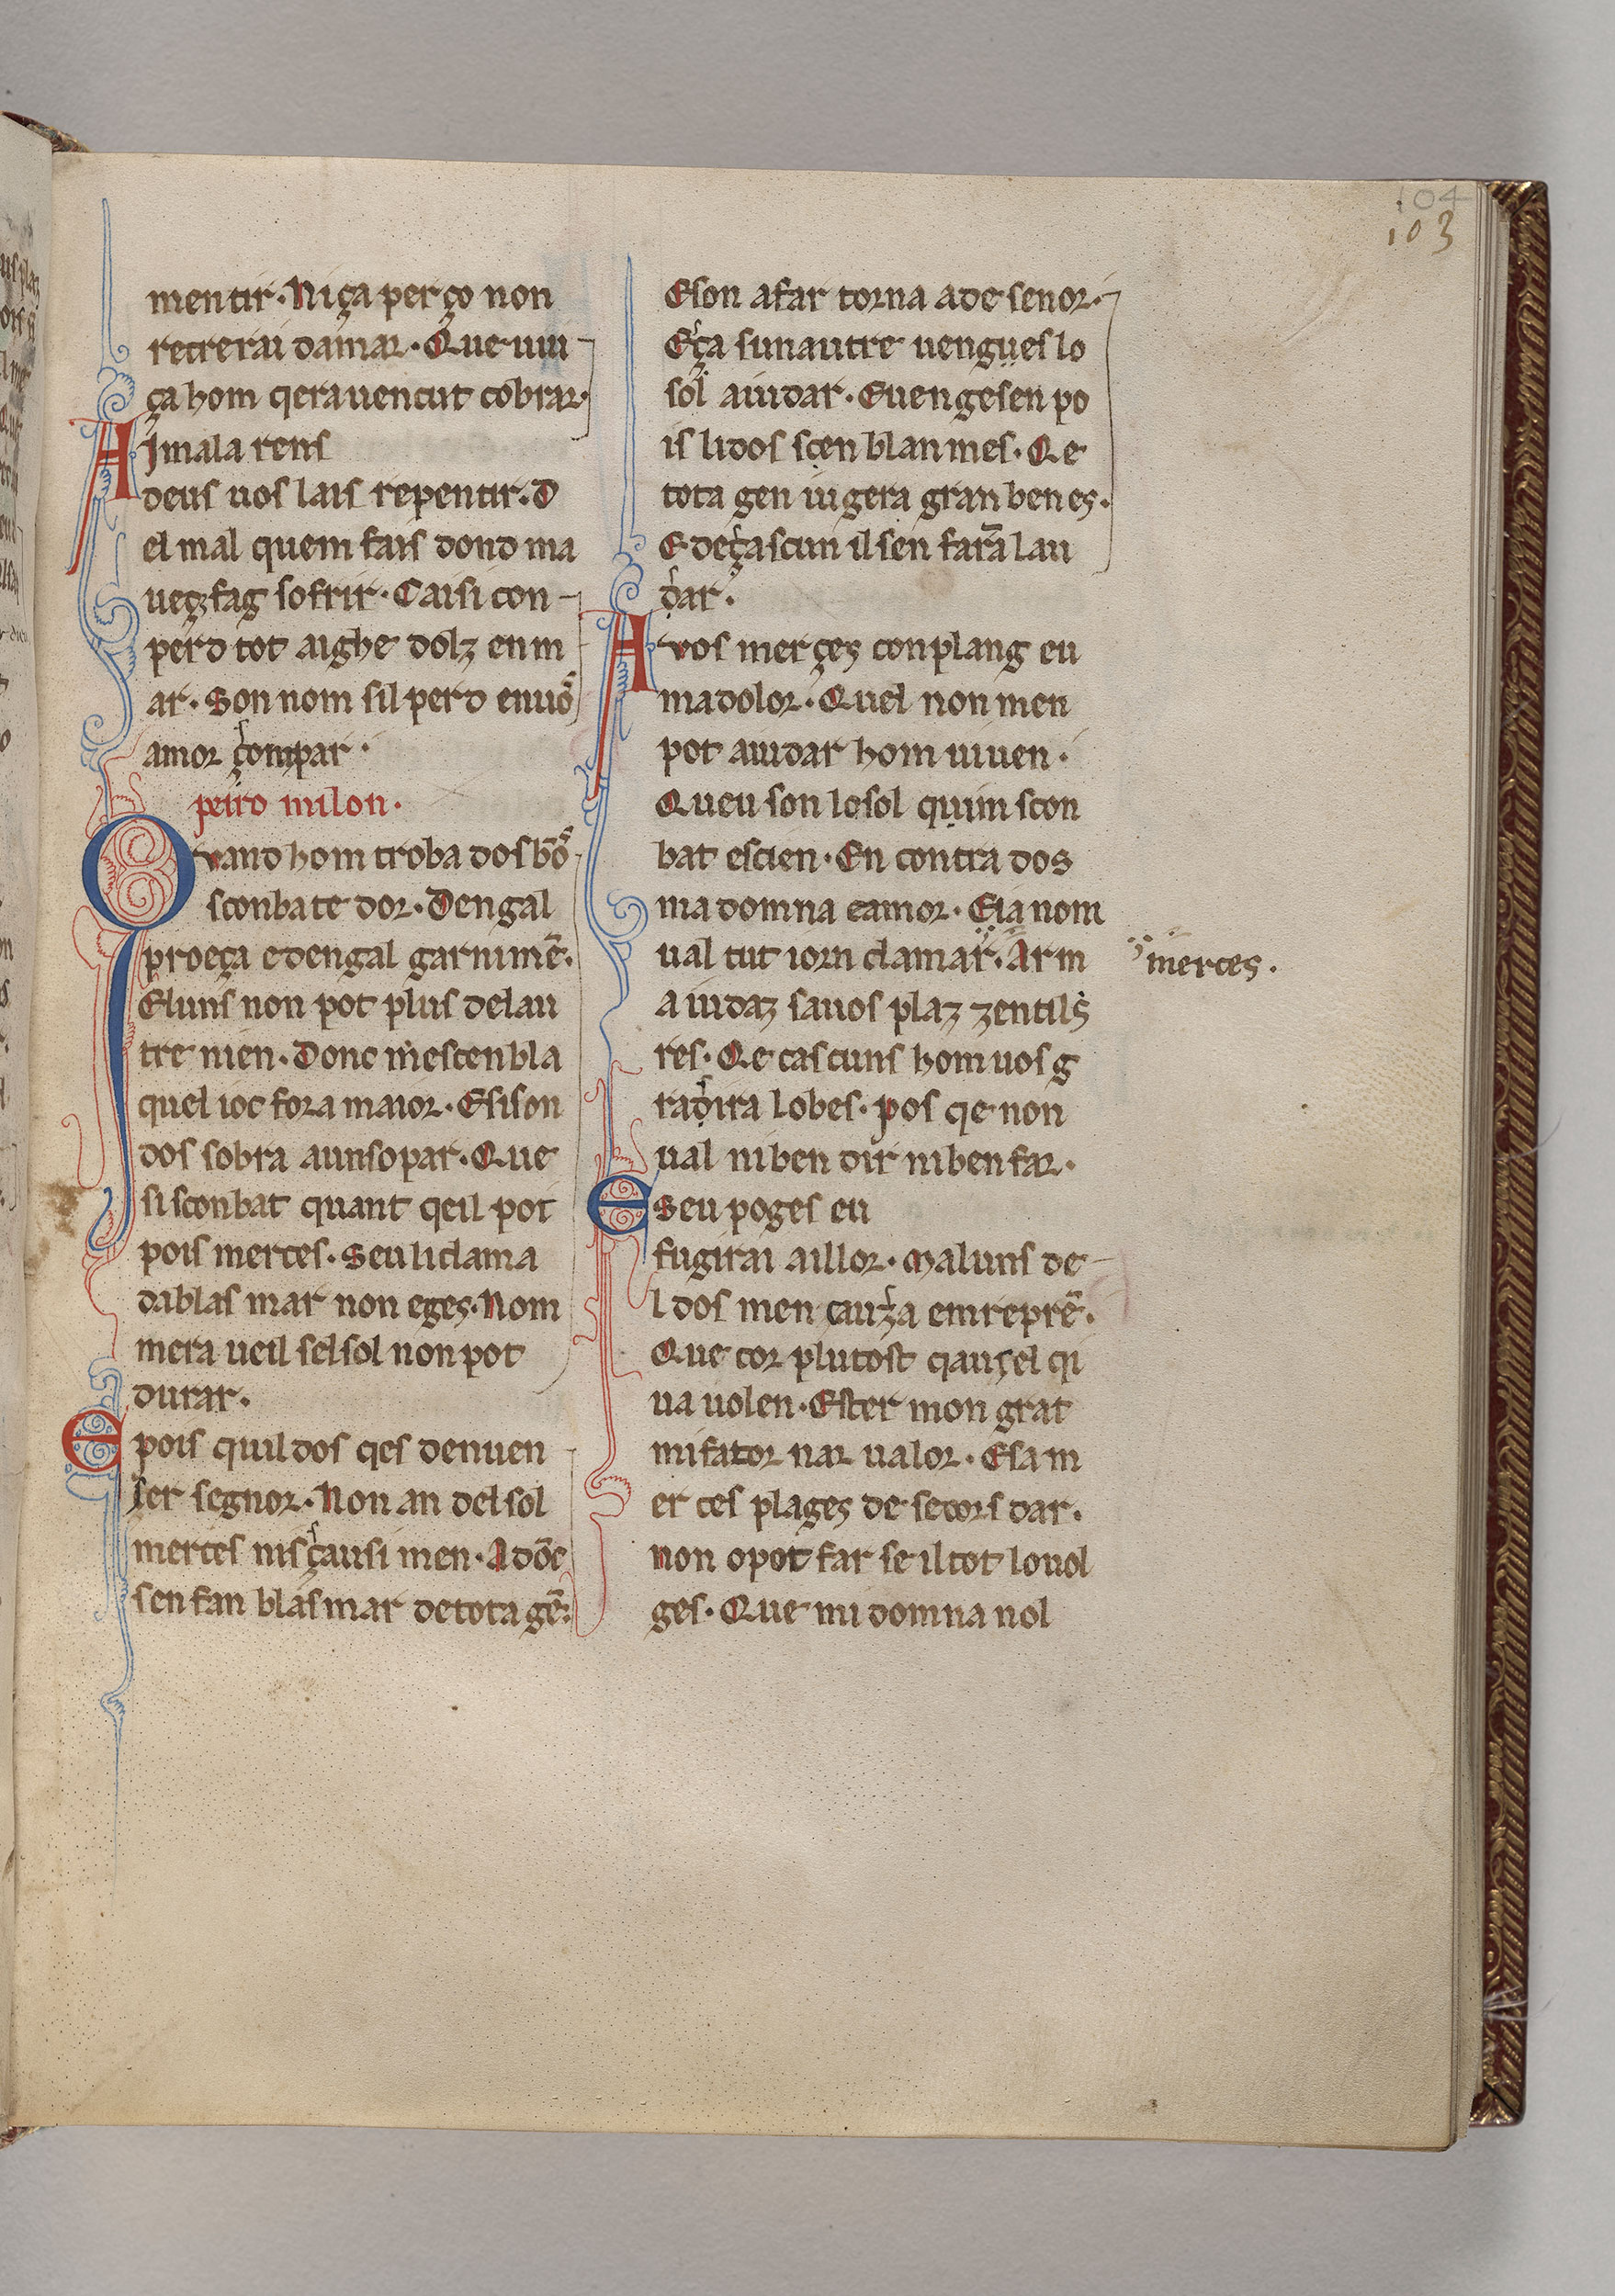 104
103
mentir. Ni ça per ço non
retrerai damar. Que uiu
ça hom qera uencut cobrar.
Ai mala rens
deus uos lais repentir. D
el mal quem fais dond ma
ueç fag sofrir. Caisi con
perd tot aighe dolz en m
ar. Son nom sil perd en uos
amor çompar.
peiro milon.
Quand hom troba dos bōs
sconbatedor. Dengal
proeça edengal garnimē.
Eluns non pot plus delau
tre nien. Donc mescenbla
quel ioc fora maior. Esison
dos sobra aunsopar. Que
sisconbat quant qeil pot
pois merces. Seuliclama
dablasmar non eges. Nom
mera ueil selsol non pot
durar.
E pois quil dos qes denuen
ser segnor. Non an delsol
merces nisçausimen. Adōc
sen fan blasmar de tota gē.
Eson afar torna ade senor.
Eça sunautre uengues lo
sol aiudar. Euengesen po
is lidos scenblan mes. Qe
tota gen iugera gran ben es.
E deçascun il sen farā lau
dar.
A uos merçes conplang eu
ma dolor. Quel non men
pot aiudar hom uiuen.
Queu son lo sol quim scon
bat escien. En contra dos
ma domna eamor. Eia nom
ual tut iorn clamar. Arm
merces.
aiudaz sauos plaz zentils
res. Qe cascuns hom uos g
radira lobes. pos qe non
ual ni ben dir ni ben far.
E seu poges eu
fugirai aillor. Maluns de
l dos men cauza em reprē.
Que cor plutost qauçel qi
ua uolen. Ester mon grat
mi fa tornar ualor. Esa m
erces plages de secors dar.
non o pot far se il tot lo uol
ges. Que mi domna nol